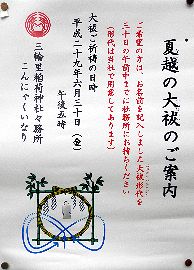 夏越の大祓のご案内
ご希望の方は、お名前を記入しました大祓形代を
三十日の午前中までに社務所にお持ちください
(形代は当社で用意してあります)
大祓ご祈祷の日時
平成二十九年六月三十日(金)
午後五時
三輪里稲荷神社々務所
こんにゃくいなり